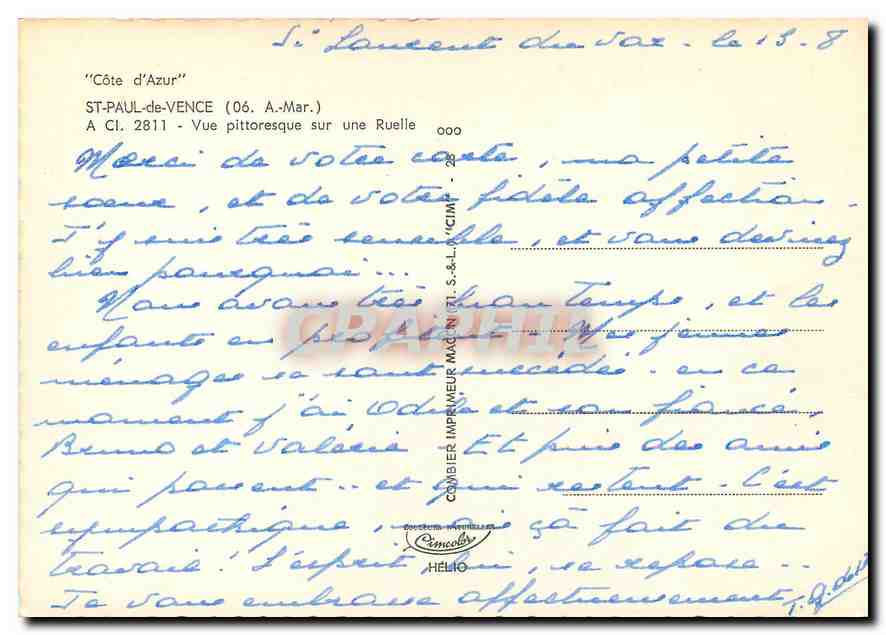 St Laurent du Var - le 13-8
"Côte d'Azur"
ST-PAUL-de-VENCE (06. A.-Mar.)
A Cl. 2811 - Vue pittoresque sur une Ruelle
ooo
Merci de votre carte, ma petite
soeur, et de votre fidèle affection -
J'y suis très sensible, et vous devinez
bien pourquoi...
Nous avons très beau temps, et les
enfants en profitent - Mes jeunes
ménages se sont succédés - en ce
moment j'ai Odile et son fiancé,
Bruno et Valérie - Et puis des amis
qui passent .. et qui restent - C'est
sympathique, mais çà fait du
travail ! L'esprit, lui, se repose ..
Je vous embrasse affectueusement
COMBIER IMPRIMEUR MACON (71. S.-&-L.) "CIM" - 28
COULEURS NATURELLES
Cimcolor
HÉLIO
CPAPHIL